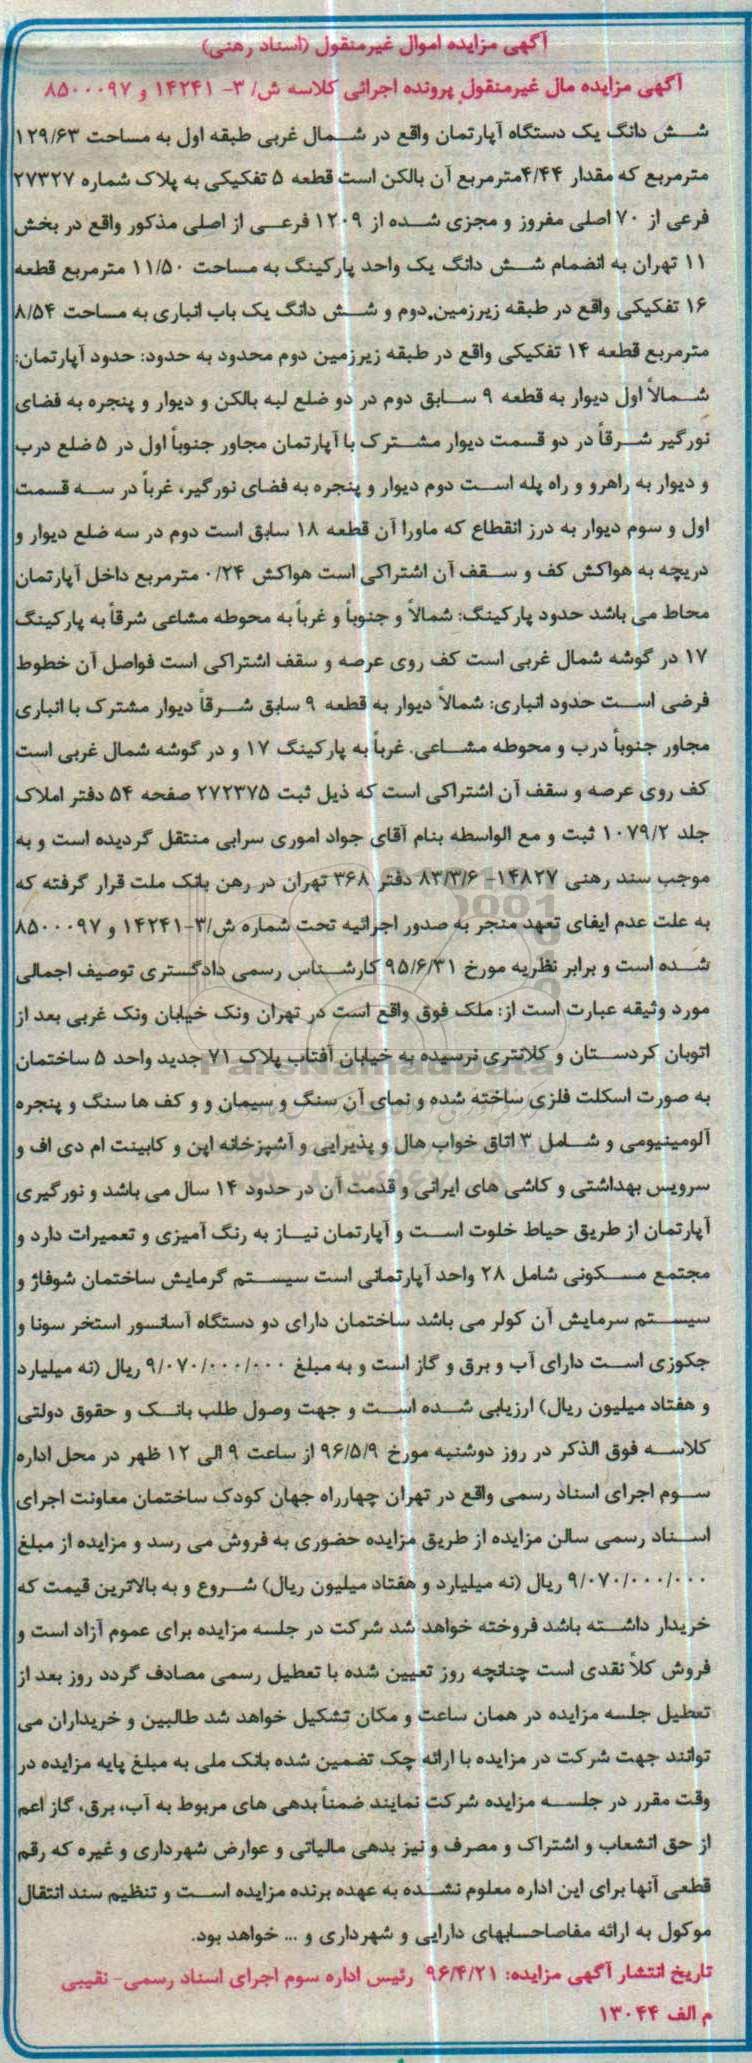 آگهی مزایده اموال غیرمنقول (اسناد رهنی)
آگهی مزایده مال غیرمنقول پرونده اجرائی کلاسه ش/ ۳- ۱۴۲۴۱ و ۸۵۰۰۰۹۷
شش دانگ یک دستگاه آپارتمان واقع در شمال غربی طبقه اول به مساحت ۱۲۹/۶۳
مترمربع که مقدار ۴/۴۴مترمربع آن بالکن است قطعه ۵ تفکیکی به پلاک شماره ۲۷۳۲۷
فرعی از ۷۰ اصلی مفروز و مجزی شده از ۱۲۰۹ فرعی از اصلی مذکور واقع در بخش
۱۱ تهران به انضمام شش دانگ یک واحد پارکینگ به مساحت ۱۱/۵۰ مترمربع قطعه
۱۶ تفکیکی واقع در طبقه زیرزمین دوم و شش دانگ یک باب انباری به مساحت ۸/۵۴
مترمربع قطعه ۱۴ تفکیکی واقع در طبقه زیرزمین دوم محدود به حدود: حدود آپارتمان:
شمالاً اول دیوار به قطعه ۹ سابق دوم در دو ضلع لبه بالکن و دیوار و پنجره به فضای
نورگیر شرقاً در دو قسمت دیوار مشترک با آپارتمان مجاور جنوباً اول در ۵ ضلع درب
و دیوار به راهرو و راه پله است دوم دیوار و پنجره به فضای نورگیر، غرباً در سه قسمت
اول و سوم دیوار به درز انقطاع که ماورا آن قطعه ۱۸ سابق است دوم در سه ضلع دیوار و
دریچه به هواکش کف و سقف آن اشتراکی است هواکش ۰/۲۴ مترمربع داخل آپارتمان
محاط می باشد حدود پارکینگ: شمالاً و جنوباً و غرباً به محوطه مشاعی شرقاً به پارکینگ
۱۷ در گوشه شمال غربی است کف روی عرصه و سقف اشتراکی است فواصل آن خطوط
فرضی است حدود انباری: شمالاً دیوار به قطعه ۹ سابق شرقاً دیوار مشترک با انباری
مجاور جنوباً درب و محوطه مشاعی. غرباً به پارکینگ ۱۷ و در گوشه شمال غربی است
کف روی عرصه و سقف آن اشتراکی است که ذیل ثبت ۲۷۲۳۷۵ صفحه ۵۴ دفتر املاک
جلد ۱۰۷۹/۲ ثبت و مع الواسطه بنام آقای جواد اموری سرابی منتقل گردیده است و به
موجب سند رهنی ۱۴۸۲۷- ۸۳/۳/۶ دفتر ۳۶۸ تهران در رهن بانک ملت قرار گرفته که
به علت عدم ایفای تعهد منجر به صدور اجرائیه تحت شماره ش/۳-۱۴۲۴۱ و ۸۵۰۰۰۹۷
شده است و برابر نظریه مورخ ۹۵/۶/۳۱ کارشناس رسمی دادگستری توصیف اجمالی
مورد وثیقه عبارت است از: ملک فوق واقع است در تهران ونک خیابان ونک غربی بعد از
اتوبان کردستان و کلانتری نرسیده به خیابان آفتاب پلاک ۷۱ جدید واحد ۵ ساختمان
به صورت اسکلت فلزی ساخته شده و نمای آن سنگ و سیمان و و کف ها سنگ و پنجره
آلومینیومی و شامل ۳ اتاق خواب هال و پذیرایی و آشپزخانه اپن و کابینت ام دی اف و
سرویس بهداشتی و کاشی های ایرانی و قدمت آن در حدود ۱۴ سال می باشد و نورگیری
آپارتمان از طریق حیاط خلوت است و آپارتمان نیاز به رنگ آمیزی و تعمیرات دارد و
مجتمع مسکونی شامل ۲۸ واحد آپارتمانی است سیستم گرمایش ساختمان شوفاژ و
سیستم سرمایش آن کولر می باشد ساختمان دارای دو دستگاه آسانسور استخر سونا و
جکوزی است دارای آب و برق و گاز است و به مبلغ ۹/۰۷۰/۰۰۰/۰۰۰ ریال (نه میلیارد
و هفتاد میلیون ریال) ارزیابی شده است و جهت وصول طلب بانک و حقوق دولتی
کلاسه فوق الذکر در روز دوشنبه مورخ ۹۶/۵/۹ از ساعت ۹ الی ۱۲ ظهر در محل اداره
سوم اجرای اسناد رسمی واقع در تهران چهارراه جهان کودک ساختمان معاونت اجرای
اسناد رسمی سالن مزایده از طریق مزایده حضوری به فروش می رسد و مزایده از مبلغ
۹/۰۷۰/۰۰۰/۰۰۰ ریال (نه میلیارد و هفتاد میلیون ریال) شروع و به بالاترین قیمت که
خریدار داشته باشد فروخته خواهد شد شرکت در جلسه مزایده برای عموم آزاد است و
فروش کلاً نقدی است چنانچه روز تعیین شده با تعطیل رسمی مصادف گردد روز بعد از
تعطیل جلسه مزایده در همان ساعت و مکان تشکیل خواهد شد طالبین و خریداران می
توانند جهت شرکت در مزایده با ارائه چک تضمین شده بانک ملی به مبلغ پایه مزایده در
وقت مقرر در جلسه مزایده شرکت نمایند ضمناً بدهی های مربوط به آب، برق، گاز اعم
از حق انشعاب و اشتراک و مصرف و نیز بدهی مالیاتی و عوارض شهرداری و غیره که رقم
قطعی آنها برای این اداره معلوم نشده به عهده برنده مزایده است و تنظیم سند انتقال
موکول به ارائه مفاصاحسابهای دارایی و شهرداری و ... خواهد بود.
تاریخ انتشار آگهی مزایده: ۹۶/۴/۲۱ رئیس اداره سوم اجرای اسناد رسمی- نقیبی
م الف ۱۳۰۴۴